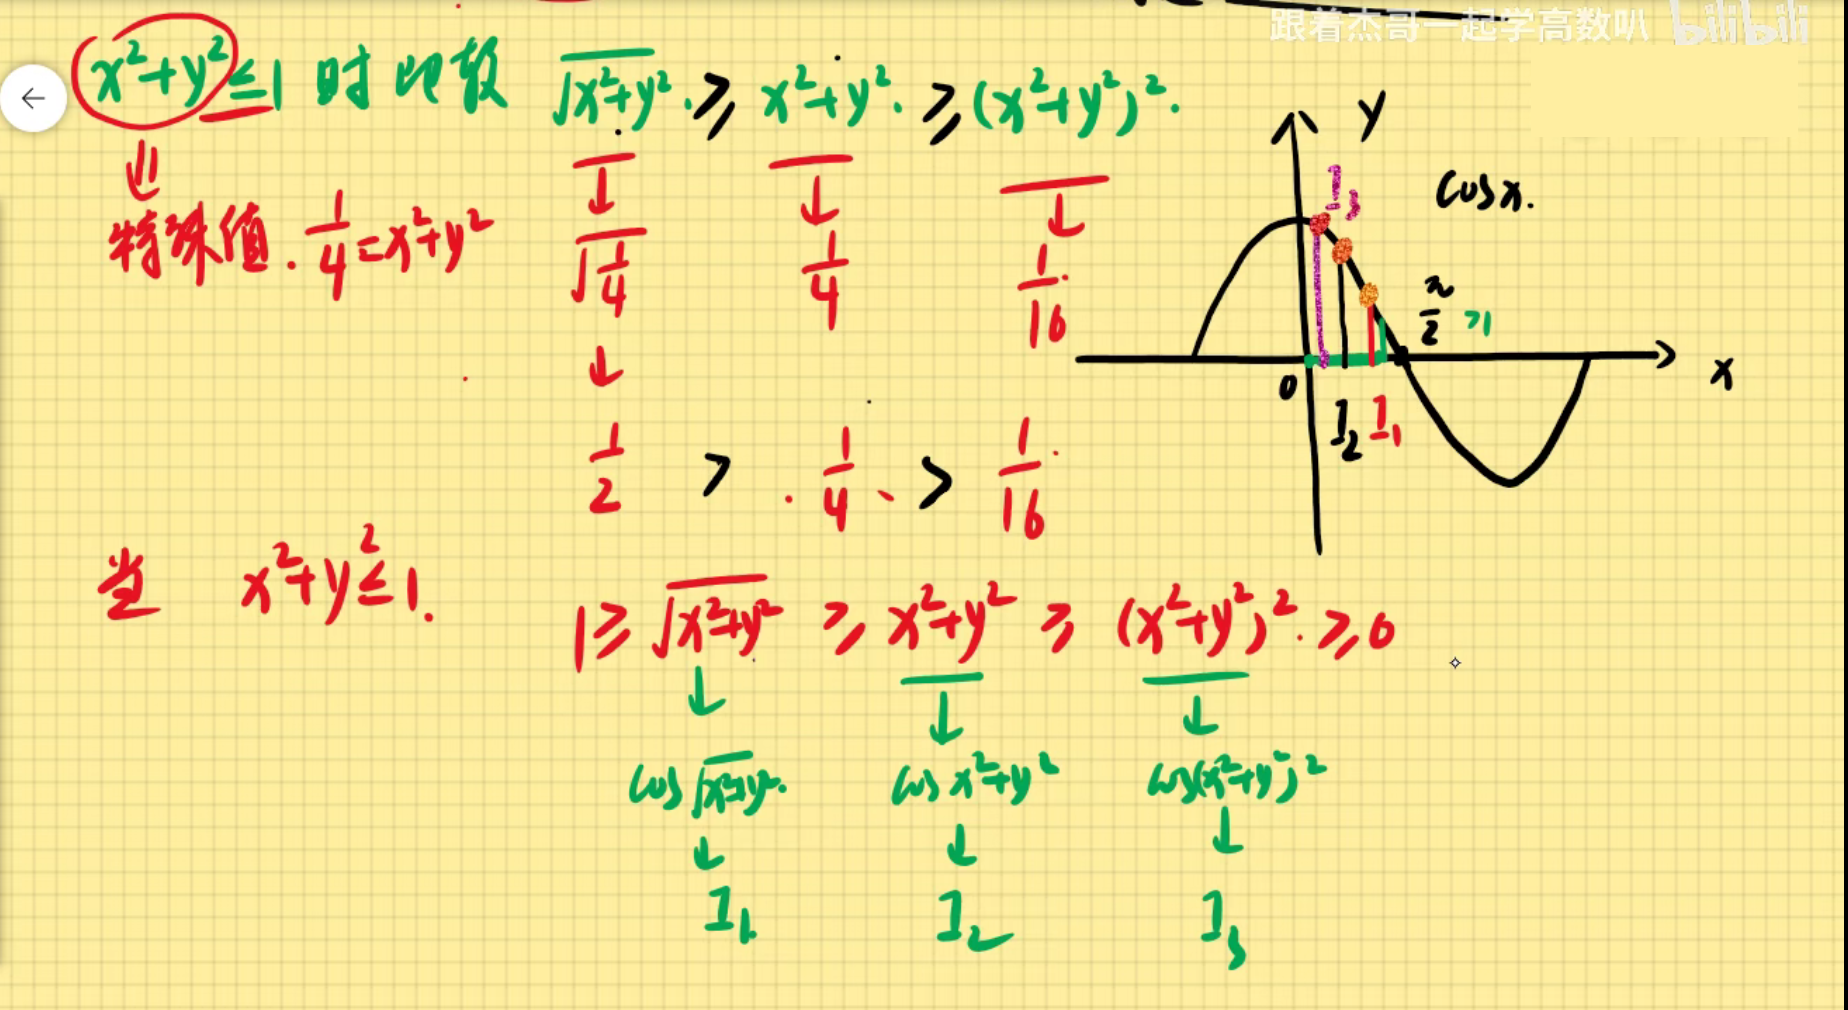 跟着杰哥一起学高数叭 bilibili
x²+y²≤1 时 比较 √x²+y² ≥ x²+y² ≥ (x²+y²)²
特殊值. 1/4 = x²+y²
√1/4 1/4 1/16
1/2 > 1/4 > 1/16
y
I₃
cosx.
π/2 >1
0
x
I₂ I₁
当 x²+y²≤1.
1 ≥ √x²+y² ≥ x²+y² ≥ (x²+y²)² ≥ 0
cos√x²+y² cos x²+y² cos(x²+y²)²
I₁ I₂ I₃